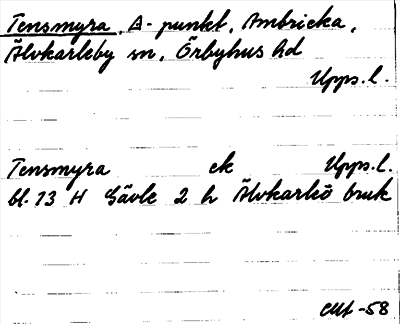 Tensmyra, Δ-punkt, Ambricka,
Älvkarleby sn, Örbyhus hd
Upps.l.
Tensmyra ek Upps.l.
bl. 13 H Gävle 2 h Älvkarleö bruk
-58